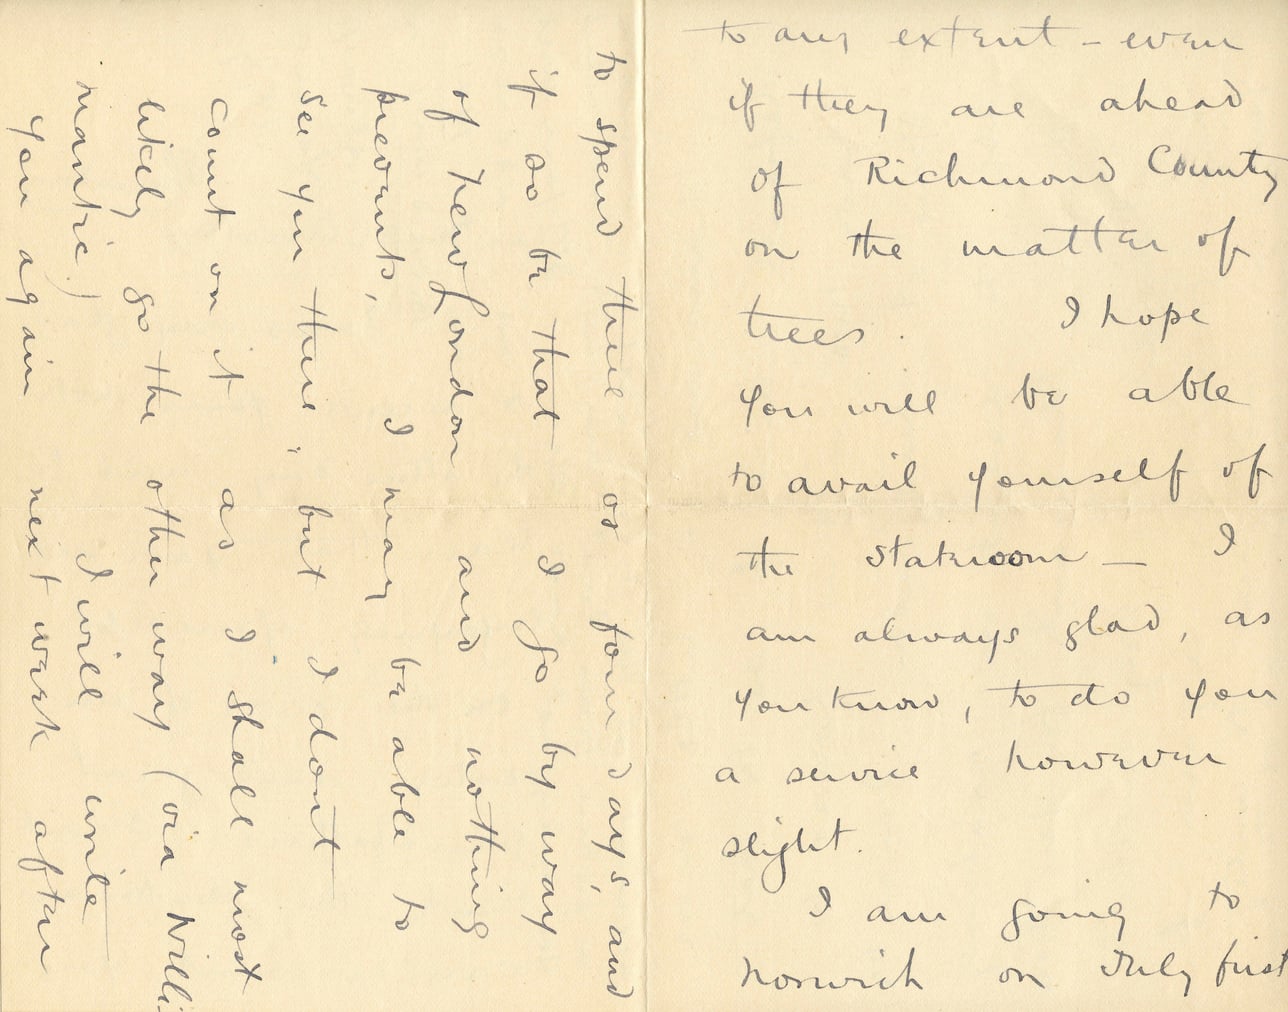 to any extent – even
if they are ahead
of Richmond County
on the matter of
trees. I hope
you will be able
to avail yourself of
the stateroom — I
am always glad, as
you know, to do you
a service however
slight.
I am going to
Norwich on July first
to spend three or four days, and
if so be that I go by way
of New London and nothing
prevents, I may be able to
see you there, but I dont
count on it as I shall most
likely go the other way (via Willi-
mantic) I will write
you again next week after